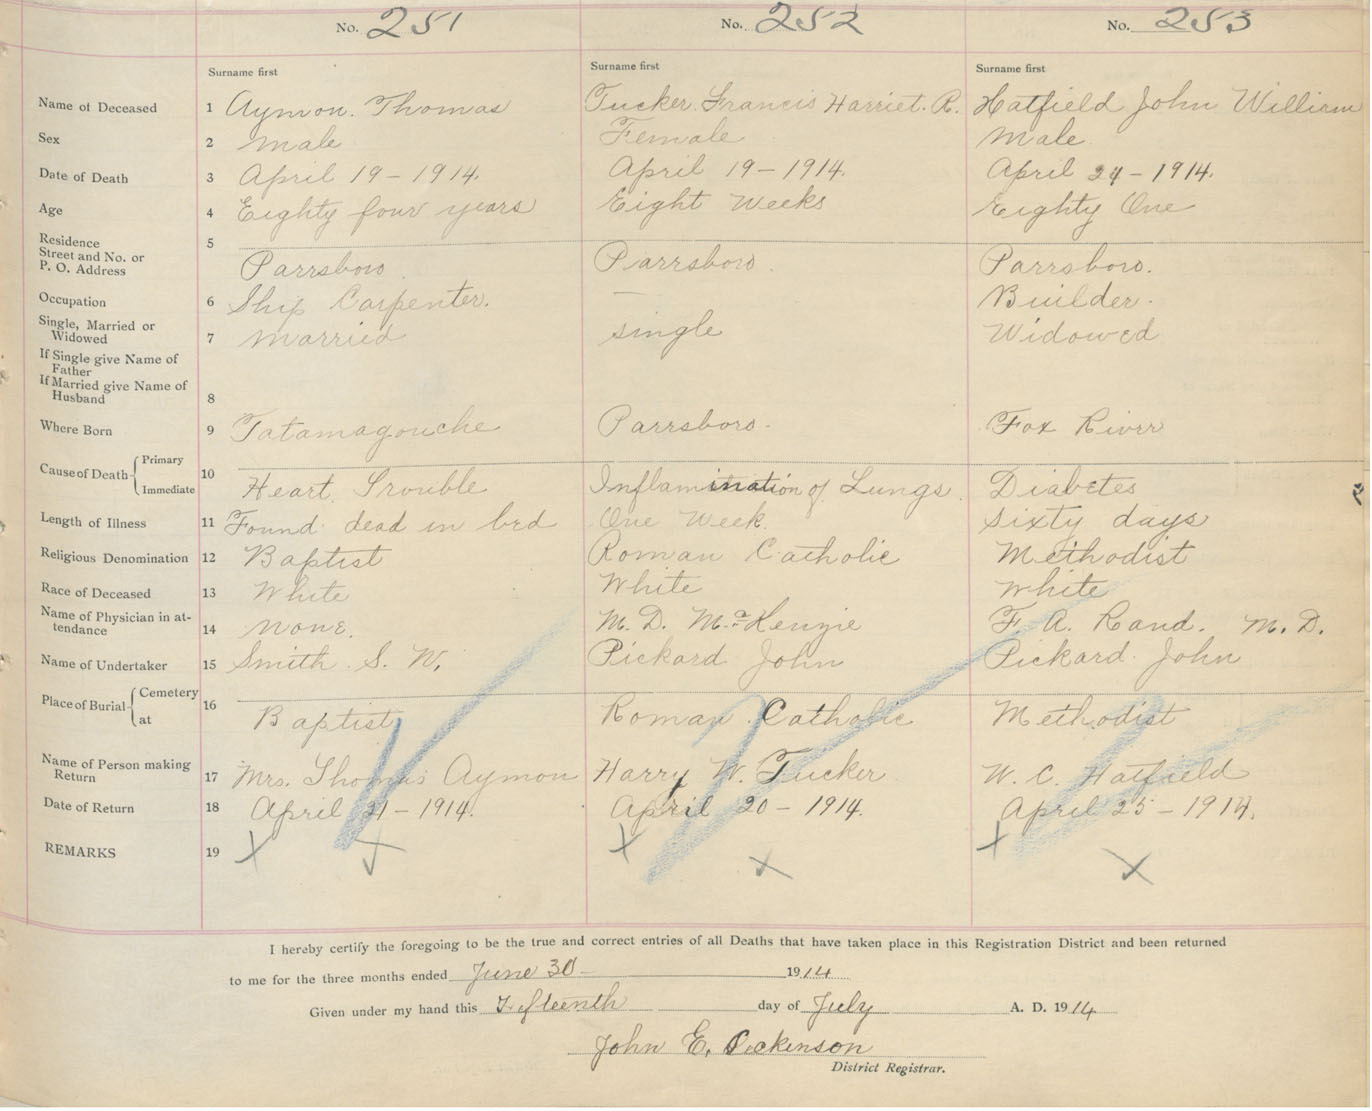 No. 251 No. 252 No. 253
Surname first Surname first Surname first
Name of Deceased 1 Aymon. Thomas Tucker. Francis Harriet. R. Hatfield John William
Sex 2 Male Female Male
Date of Death 3 April 19 - 1914. April 19 - 1914. April 24 - 1914.
Age 4 Eighty four years Eight Weeks Eighty One
Residence 5
Street and No. or
P. O. Address Parrsboro Parrsboro. Parrsboro.
Occupation 6 Ship Carpenter. — Builder.
Single, Married or
Widowed 7 Married Single Widowed
If Single give Name of
Father
If Married give Name of
Husband 8
Where Born 9 Tatamagouche Parrsboro. Fox River
Cause of Death Primary 10
Immediate Heart Trouble Inflamination of Lungs. Diabetes
Length of Illness 11 Found dead in bed One Week. Sixty days
Religious Denomination 12 Baptist Roman Catholic Methodist
Race of Deceased 13 White White White
Name of Physician in at-
tendance 14 None. M. D. McKenzie F A. Rand. M. D.
Name of Undertaker 15 Smith. S. W. Pickard John Pickard. John
Place of Burial Cemetery 16
at Baptist Roman Catholic Methodist
Name of Person making
Return 17 Mrs. Thomas Aymon Harry W. Tucker W. C. Hatfield
Date of Return 18 April 21 - 1914. April 20 - 1914. April 25 - 1914.
REMARKS 19 X X X X X X
I hereby certify the foregoing to be the true and correct entries of all Deaths that have taken place in this Registration District and been returned
to me for the three months ended June 30 1914
Given under my hand this Fifteenth day of July A. D. 1914
John E. Dickinson
District Registrar.